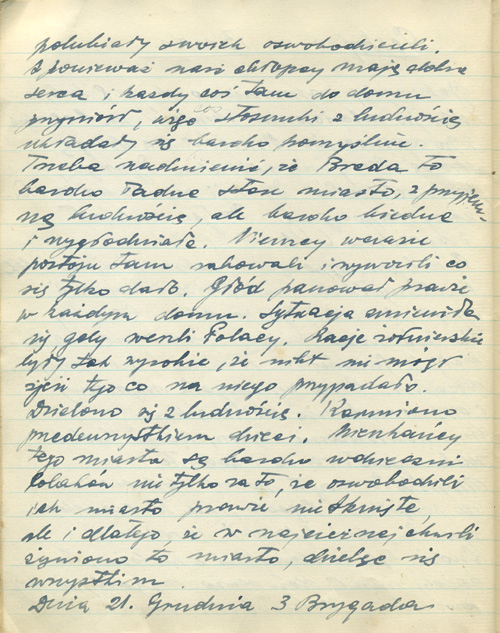 polubiały swoich oswobodzicieli.
A ponieważ nasi chłopcy mają dobre
serca i każdy coś tam do domu
przyniósł, więc stosunki z ludnością
układały się bardzo pomyślnie.
Trzeba nadmienić, że Breda to
bardzo ładne stare miasto, z przyjem-
ną ludnością, ale bardzo biedną
i wygłodniałą. Niemcy w czasie
postoju tam rabowali i wywozili co
się tylko dało. Głód panował prawie
w każdym domu. Sytuacja zmieniła
się gdy weszli Polacy. Racje żołnierskie
były tak wysokie, że nikt nie mógł
zjeść tego co na niego przypadało.
Dzielono się z ludnością. Karmiono
przedewszystkiem dzieci. Mieszkańcy
tego miasta są bardzo wdzięczni
Polakom nie tylko za to, że oswobodzili
ich miasto prawie nietknięte,
ale i dlatego, że w najcięższej chwili
żywiono to miasto, dzieląc się
wszystkim
Dnia 21. Grudnia 3 Brygada